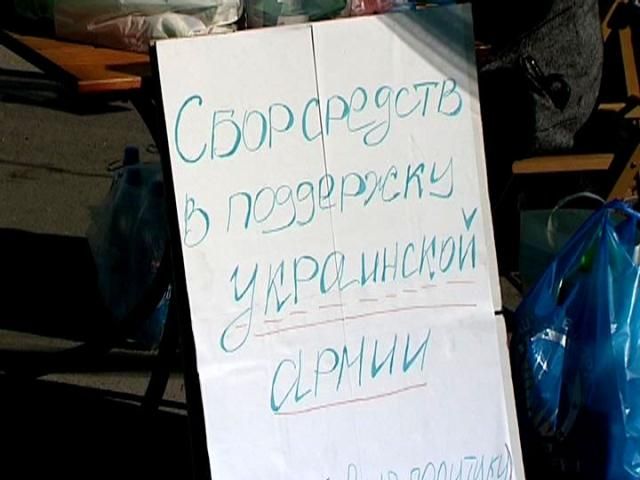 Сбор средств
в поддержку
украинской
армии
политику)